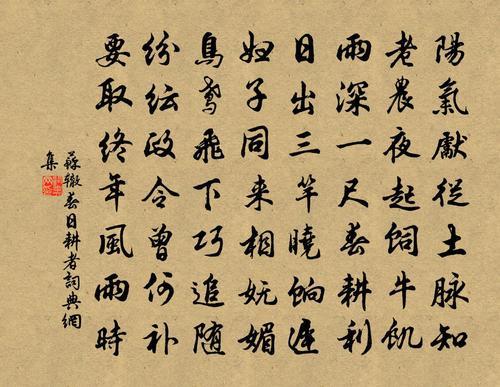 陽氣獻從土脉知
老農夜起飼牛飢
雨深一尺春耕利
日出三竿曉餉遲
婦子同来相妩媚
鳥鸢飛下巧追随
纷纭政令曾何补
要取终年風雨時
蘇辙春日耕者詞典網
集